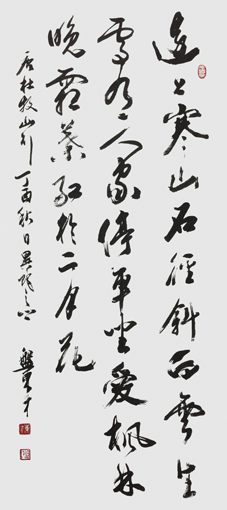 遠上寒山石徑斜白雲生
處有人家停車坐愛楓林
晚霜葉紅於二月花
唐杜牧山行丁酉秋日